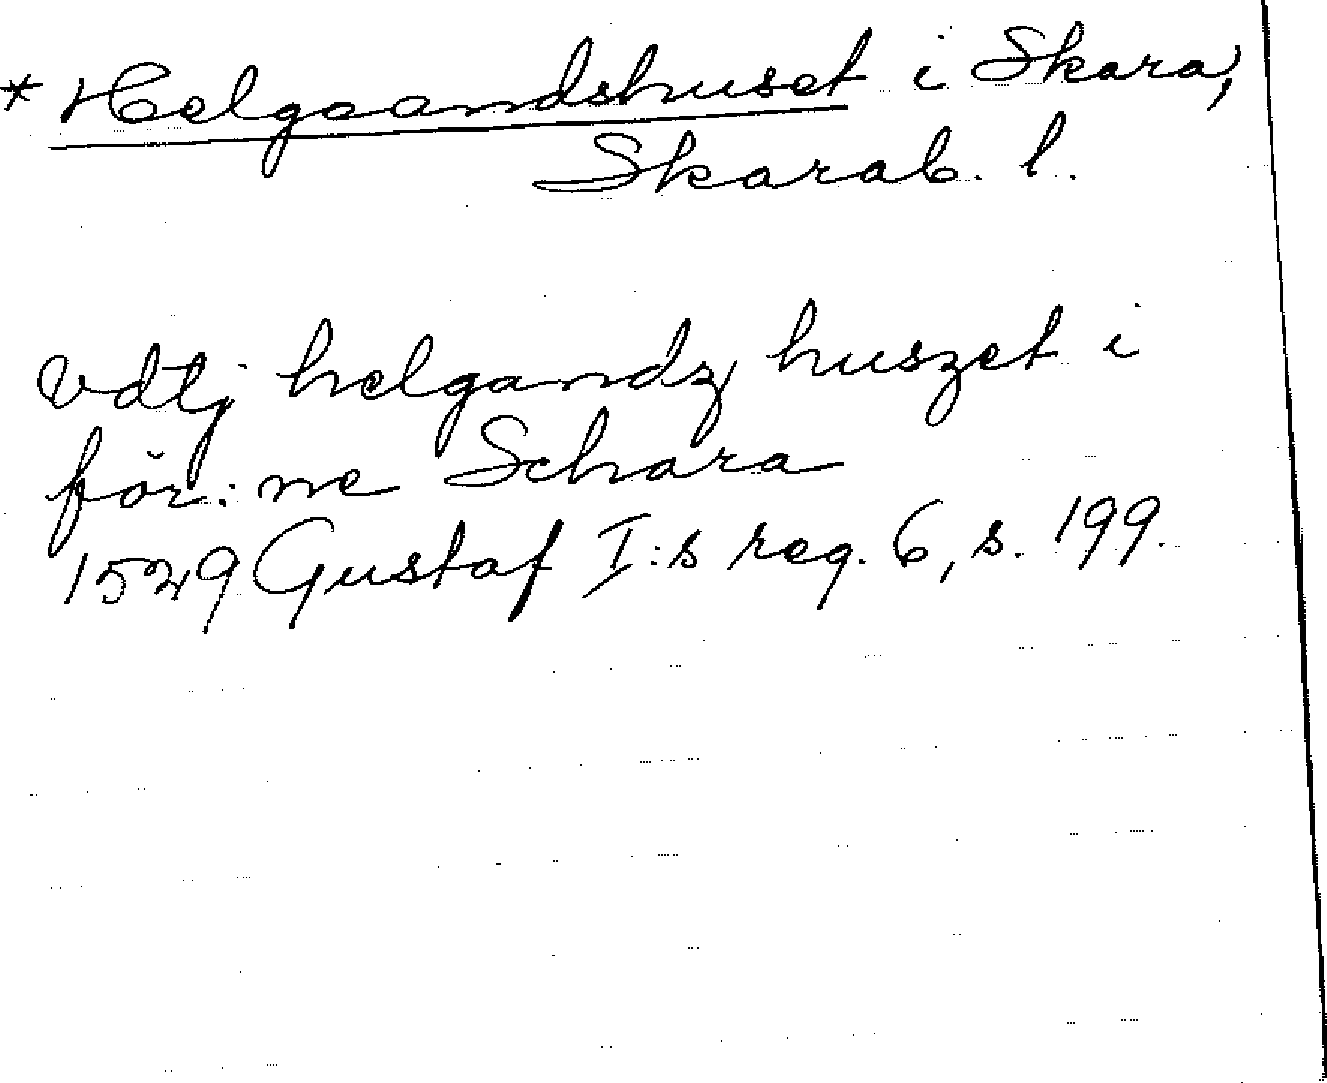 * Helgaandshuset i Skara,
Skarab. l.
vdtj helgandz huszet i
för:ne Schara
1529 Gustaf I:s reg. 6, s. 199.